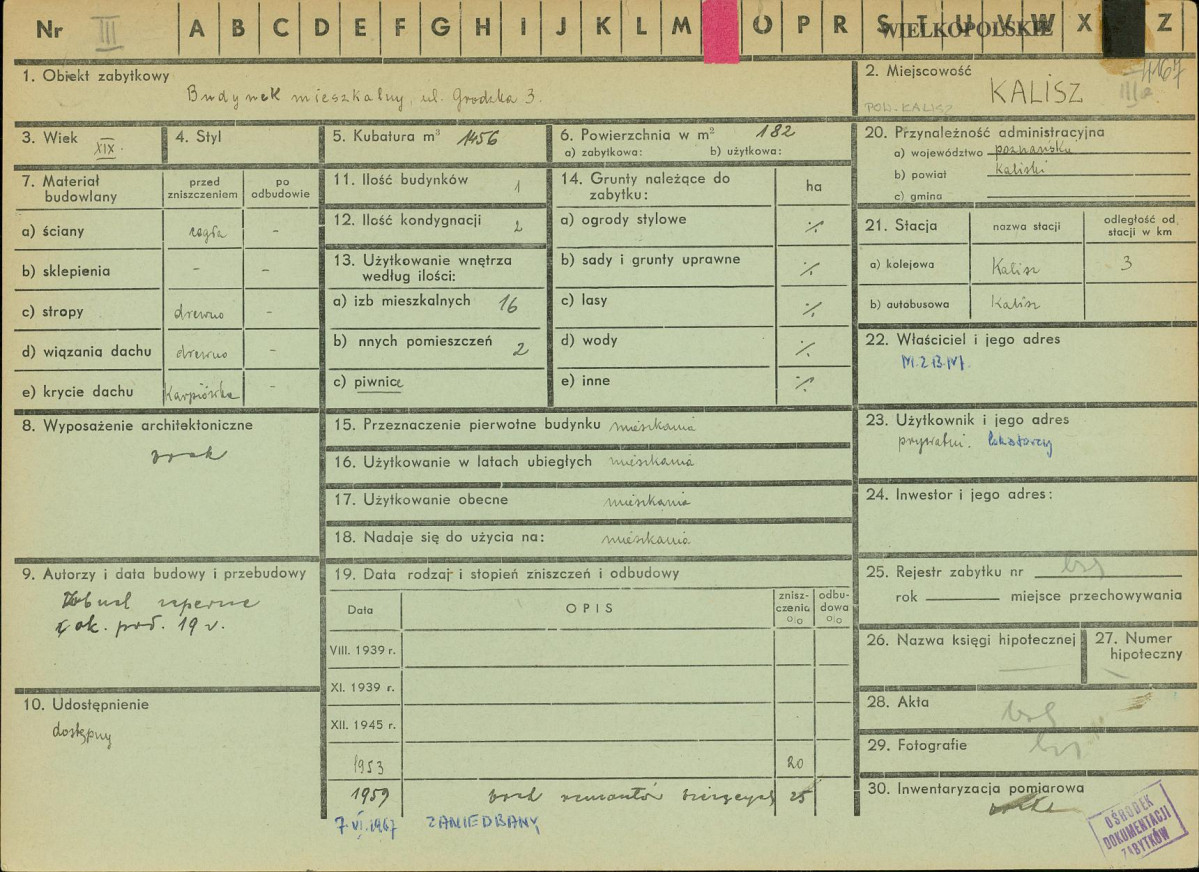 Nr III A B C D E F G H I J K L M O P R S T U V W X Z
WIELKOPOLSKIE
1. Obiekt zabytkowy
Budynek mieszkalny, ul. Grodzka 3.
2. Miejscowość
KALISZ
POW. KALISZ
IIIa
4167
3. Wiek
XIX.
4. Styl
5. Kubatura m³ 1456
6. Powierzchnia w m² 182
a) zabytkowa: b) użytkowa:
20. Przynależność administracyjna
a) województwo poznańskie
b) powiat kaliski
c) gmina
7. Materiał budowlany
przed zniszczeniem
po odbudowie
a) ściany cegła -
b) sklepienia - -
c) stropy drewno -
d) wiązania dachu drewno -
e) krycie dachu Karpiówka -
11. Ilość budynków 1
12. Ilość kondygnacji 2
13. Użytkowanie wnętrza
według ilości:
a) izb mieszkalnych 16
b) nnych pomieszczeń 2
c) piwnice
14. Grunty należące do
zabytku:
ha
a) ogrody stylowe ./.
b) sady i grunty uprawne ./.
c) lasy ./.
d) wody ./.
e) inne ./.
21. Stacja
nazwa stacji
odległość od
stacji w km
a) kolejowa Kalisz 3
b) autobusowa Kalisz
22. Właściciel i jego adres
M.Z.B.M.
8. Wyposażenie architektoniczne
brak
15. Przeznaczenie pierwotne budynku mieszkania
16. Użytkowanie w latach ubiegłych mieszkania
17. Użytkowanie obecne mieszkania
18. Nadaje się do użycia na: mieszkania
23. Użytkownik i jego adres
prywatni. lokatorzy
24. Inwestor i jego adres:
9. Autorzy i data budowy i przebudowy
ok. poł. 19 w.
10. Udostępnienie
dostępny
19. Data rodzaj i stopień zniszczeń i odbudowy
Data
OPIS
znisz-
czenia
o|o
odbu-
dowa
o|o
VIII. 1939 r.
XI. 1939 r.
XII. 1945 r.
1953 20
1959 brak remontów bieżących 25
7 VI. 1967 ZANIEDBANY
25. Rejestr zabytku nr
rok miejsce przechowywania
26. Nazwa księgi hipotecznej
27. Numer
hipoteczny
28. Akta
29. Fotografie
30. Inwentaryzacja pomiarowa
OŚRODEK
DOKUMENTACJI
ZABYTKÓW